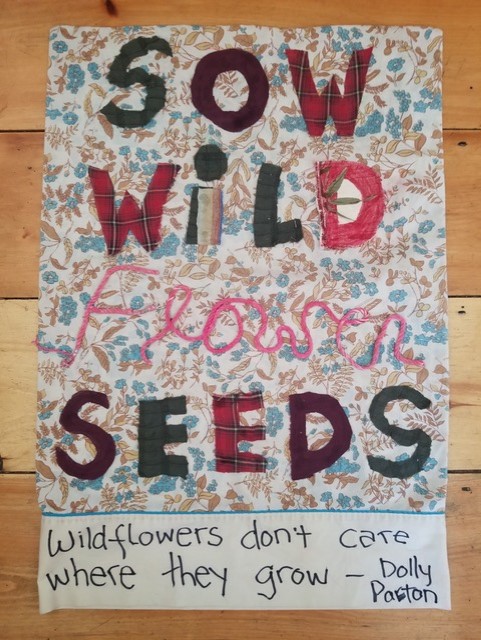 SOW
WiLD
Flower
SEEDS
Wildflowers don't care
where they grow - Dolly
Parton